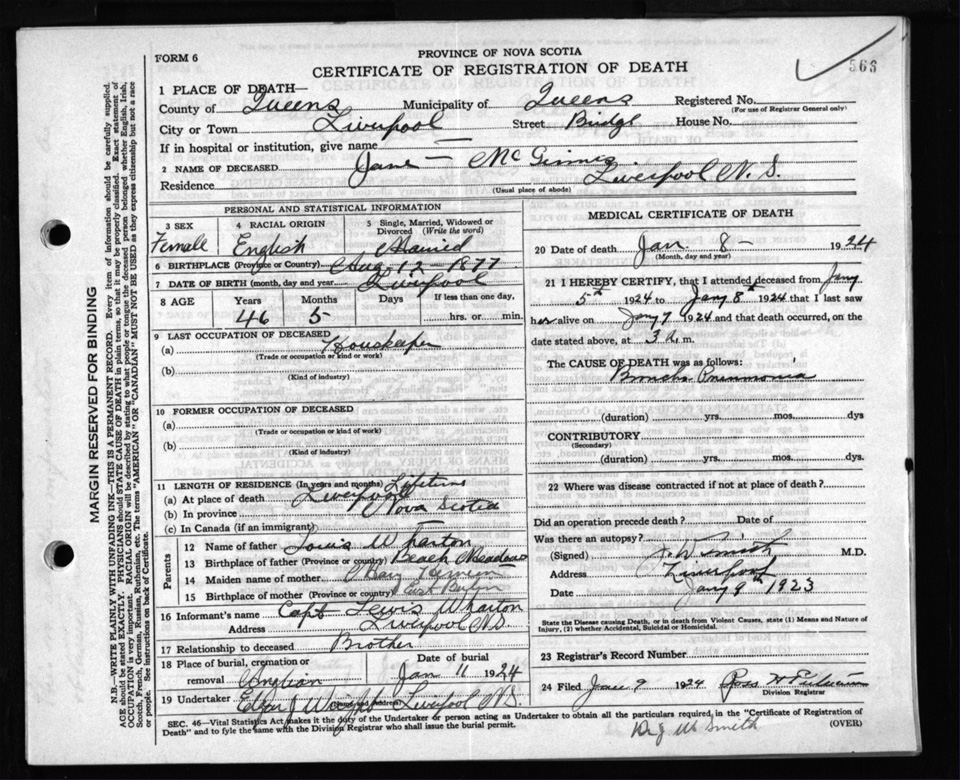 FORM 6
PROVINCE OF NOVA SCOTIA
CERTIFICATE OF REGISTRATION OF DEATH
566
1 PLACE OF DEATH—
County of Queens Municipality of Queens Registered No.
(For use of Registrar General only)
City or Town Liverpool Street Bridge House No.
If in hospital or institution, give name
2 NAME OF DECEASED Jane McGinnis
Residence Liverpool N.S.
(Usual place of abode)
PERSONAL AND STATISTICAL INFORMATION
3 SEX 4 RACIAL ORIGIN 5 Single, Married, Widowed or Divorced (Write the word)
Female English Married
6 BIRTHPLACE (Province or Country) Aug 12 - 1877
7 DATE OF BIRTH (month, day and year) Liverpool
8 AGE Years Months Days If less than one day,
46 5 hrs. or min.
9 LAST OCCUPATION OF DECEASED
(a) Housekeeper
(Trade or occupation or kind of work)
(b)
(Kind of industry)
10 FORMER OCCUPATION OF DECEASED
(a)
(Trade or occupation or kind of work)
(b)
(Kind of industry)
11 LENGTH OF RESIDENCE (In years and months) Lifetime
(a) At place of death Liverpool
(b) In province Nova Scotia
(c) In Canada (if an immigrant)
Parents
12 Name of father Louis Wharton
13 Birthplace of father (Province or country) Beach Meadows
14 Maiden name of mother Mary
15 Birthplace of mother (Province or country) East Berlin
16 Informant's name Capt Lewis Wharton
Address Liverpool N.S.
17 Relationship to deceased Brother
18 Place of burial, cremation or removal Date of burial
Jan 11 1924
19 Undertaker J Wright Liverpool N.S.
MEDICAL CERTIFICATE OF DEATH
20 Date of death Jan. 8 - 1924
(Month, day and year)
21 I HEREBY CERTIFY, that I attended deceased from Jany
5th 1924 to Jany 8th 1924 that I last saw
her alive on Jany 7 1924 and that death occurred, on the
date stated above, at 3 a.m.
The CAUSE OF DEATH was as follows:
Broncho Pneumonia
(duration) yrs. mos. dys
CONTRIBUTORY
(Secondary)
(duration) yrs. mos. dys
22 Where was disease contracted if not at place of death?
Did an operation precede death? Date of
Was there an autopsy?
(Signed) Smith M.D.
Address Liverpool
Date Jany 9th 1923
State the Disease causing Death, or in death from Violent Causes, state (1) Means and Nature of Injury, (2) whether Accidental, Suicidal or Homicidal.
23 Registrar's Record Number
24 Filed 9 1924
Division Registrar
SEC. 46—Vital Statistics Act makes it the duty of the Undertaker or person acting as Undertaker to obtain all the particulars required, in the "Certificate of Registration of
Death" and to fyle the same with the Division Registrar who shall issue the burial permit. (OVER)
Smith
MARGIN RESERVED FOR BINDING
N.B.—WRITE PLAINLY WITH UNFADING INK—THIS IS A PERMANENT RECORD. Every item of information should be carefully supplied.
AGE should be stated EXACTLY. PHYSICIANS should STATE CAUSE OF DEATH in plain terms, so that it may be properly classified. Exact statement of
OCCUPATION is very important. RACIAL ORIGIN will be described by stating to what people or tongue the deceased person belonged whether English, Irish,
Scotch, French, German, Russian, Ruthenian, etc. The terms "AMERICAN" or "CANADIAN" MUST NOT BE USED as they express citizenship but not a race
or people. See instructions on back of Certificate.